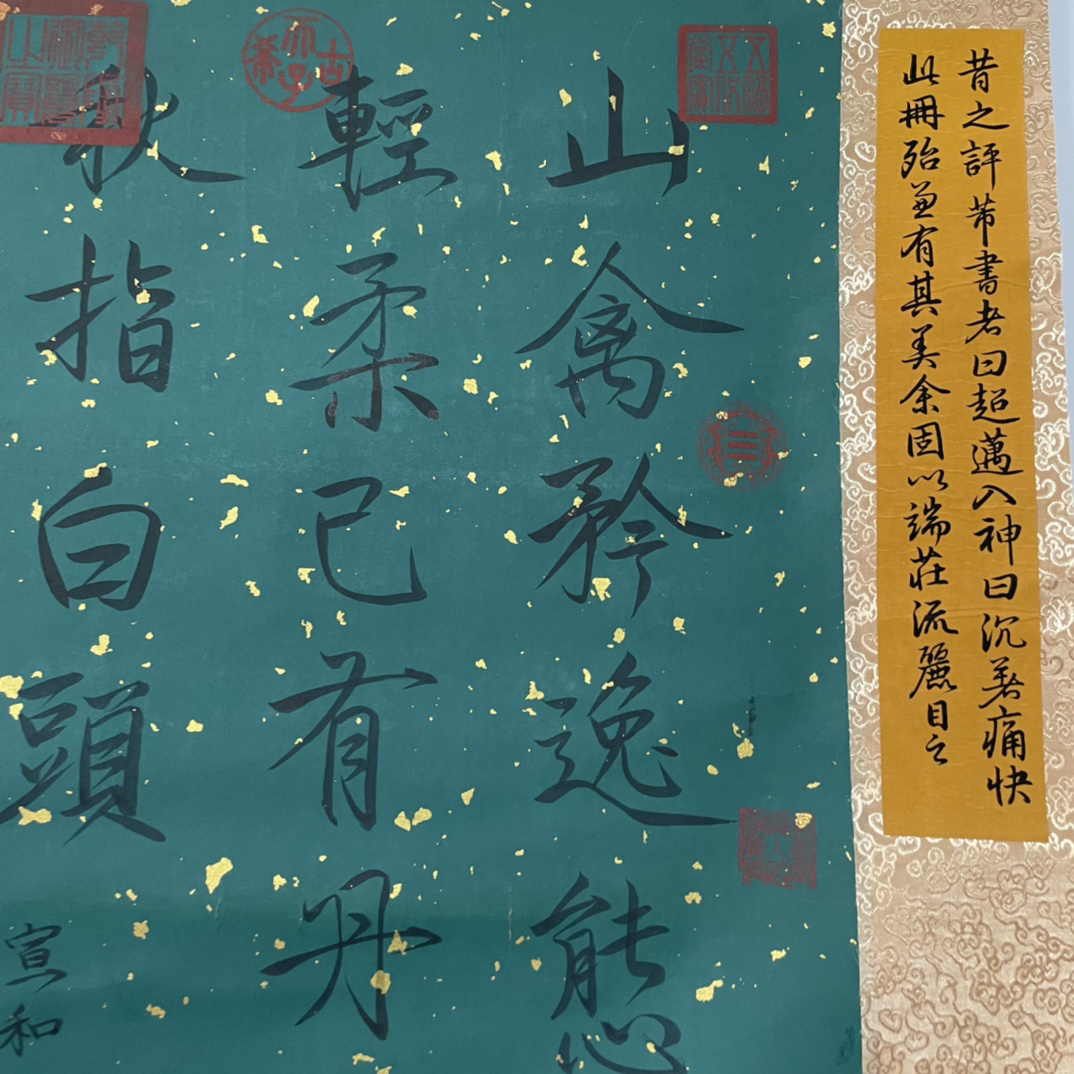 昔之評芾書者曰超邁入神曰沉著痛快
此冊殆兼有其美余固以端莊流麗目之
山禽矜逸態
古希天子
輕柔已有丹
秋指白頭
宣和